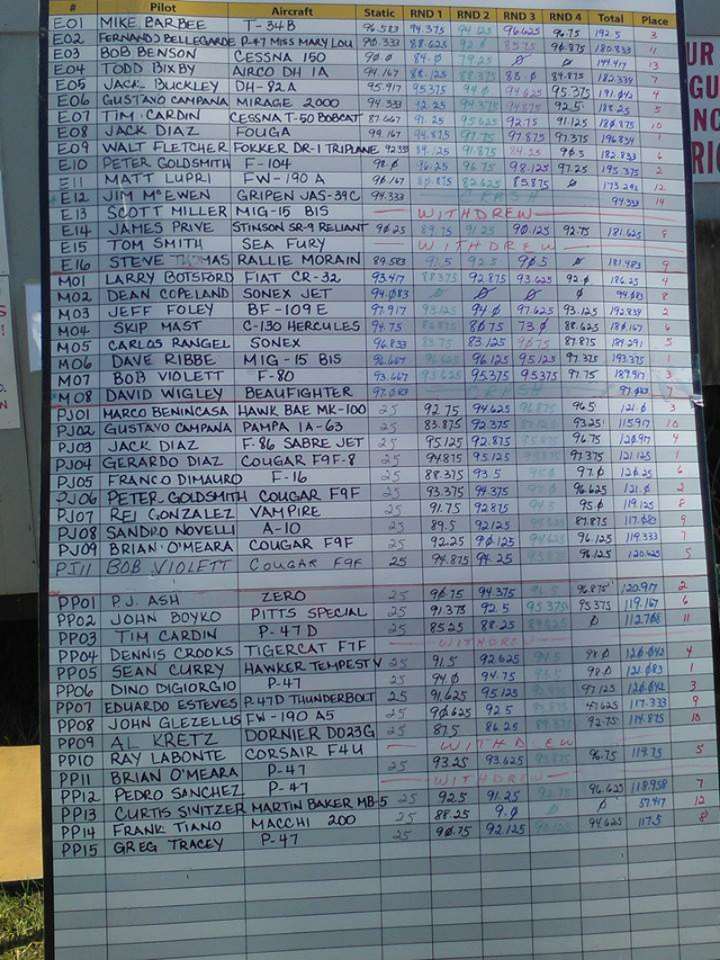 # Pilot Aircraft Static RND 1 RND 2 RND 3 RND 4 Total Place
E01 MIKE BARBEE T-34B 96.583 94.375 96.625 96.75 192.5 3
E02 FERNANDO BELLEGARDE P-47 MISS MARY LOU 90.333 88.625 90.875 180.833 11
E03 BOB BENSON CESSNA 150 90.0 84.0 79.25 0 0 13
E04 TODD BIXBY AIRCO DH 1A 94.167 88.125 88.375 88.0 84.875 182.334 7
E05 JACK BUCKLEY DH-82A 95.917 95.375 94.0 94.625 95.375 191.042 4
E06 GUSTAVO CAMPANA MIRAGE 2000 94.333 94.375 94.875 92.5 188.25 5
E07 TIM CARDIN CESSNA T-50 BOBCAT 87.667 91.25 95.625 92.75 91.125 180.875 10
E08 JACK DIAZ FOUGA 99.167 94.875 97.75 97.875 97.375 196.834 1
E09 WALT FLETCHER FOKKER DR-1 TRIPLANE 92.333 89.125 91.875 90.5 182.833 6
E10 PETER GOLDSMITH F-104 98.0 96.25 96.75 98.125 97.25 195.375 2
E11 MATT LUPRI FW-190 A 90.167 80.875 82.625 85.875 0 12
E12 JIM McEWEN GRIPEN JAS-39C 94.333 CRASH 94.333 14
E13 SCOTT MILLER MIG-15 BIS WITHDREW
E14 JAMES PRIVE STINSON SR-9 RELIANT 90.25 89.75 91.25 90.125 92.75 181.625 8
E15 TOM SMITH SEA FURY WITHDREW
E16 STEVE THOMAS RALLIE MORAIN 89.583 91.5 92.5 90.5 0 181.483 9
M01 LARRY BOTSFORD FIAT CR-32 93.417 88.375 92.875 93.625 92.0 186.25 4
M02 DEAN COPELAND SONEX JET 94.083 0 0 0 0 94.083 8
M03 JEFF FOLEY BF-109E 97.917 93.125 94.0 97.625 93.125 192.834 2
M04 SKIP MAST C-130 HERCULES 94.75 86.875 80.75 73.0 88.625 180.167 6
M05 CARLOS RANGEL SONEX 96.833 83.75 83.125 90.75 87.875 184.291 5
M06 DAVE RIBBE MIG-15 BIS 96.667 96.625 96.125 95.125 97.375 193.375 1
M07 BOB VIOLETT F-80 93.667 93.625 95.375 95.375 97.75 189.917 3
M08 DAVID WIGLEY BEAUFIGHTER 97.083 CRASH 97.083 7
PJ01 MARCO BENINCASA HAWK BAE MK-100 25 92.75 94.625 96.875 96.5 121.0 3
PJ02 GUSTAVO CAMPANA PAMPA IA-63 25 83.875 92.375 87.125 93.25 115.917 10
PJ03 JACK DIAZ F-86 SABRE JET 25 95.125 92.875 96.75 120.917 4
PJ04 GERARDO DIAZ COUGAR F9F-8 25 94.875 95.125 97.375 121.125 1
PJ05 FRANCO DIMAURO F-16 25 88.375 93.5 95.0 97.0 120.25 6
PJ06 PETER GOLDSMITH COUGAR F9F 25 93.375 94.375 97.0 96.625 121.0 2
PJ07 REI GONZALEZ VAMPIRE 25 91.75 92.875 95.0 119.125 8
PJ08 SANDRO NOVELLI A-10 25 89.5 92.125 87.875 117.083 9
PJ09 BRIAN O'MEARA COUGAR F9F 25 92.25 90.125 96.125 119.333 7
PJ11 BOB VIOLETT COUGAR F9F 25 94.875 94.25 96.125 120.625 5
PP01 P.J. ASH ZERO 25 90.75 94.375 96.5 96.875 120.917 2
PP02 JOHN BOYKO PITTS SPECIAL 25 91.375 92.5 95.375 95.375 119.167 6
PP03 TIM CARDIN P-47D 25 85.25 88.25 89.625 0 112.708 11
PP04 DENNIS CROOKS TIGERCAT F7F WITHDREW
PP05 SEAN CURRY HAWKER TEMPEST V 25 91.5 92.625 94.5 98.0 120.042 4
PP06 DINO DIGIORGIO P-47 25 94.0 94.75 96.5 98.0 121.083 1
PP07 EDUARDO ESTEVES P.47D THUNDERBOLT 25 91.625 95.125 97.125 120.042 3
PP08 JOHN GLEZELLUS FW-190 A5 25 90.625 92.5 117.333 9
PP09 AL KRETZ DORNIER DO23G 25 87.5 86.25 92.75 114.875 10
PP10 RAY LABONTE CORSAIR F4U WITHDREW
PP11 BRIAN O'MEARA P-47 25 93.25 93.625 96.75 119.75 5
PP12 PEDRO SANCHEZ P-47 WITHDREW
PP13 CURTIS SWITZER MARTIN BAKER MB-5 25 92.5 91.25 96.625 118.958 7
PP14 FRANK TIANO MACCHI 200 25 88.25 9.0 0 0 57.417 12
PP15 GREG TRACEY P-47 25 90.75 92.125 94.625 117.5 8
UR
GU
NC